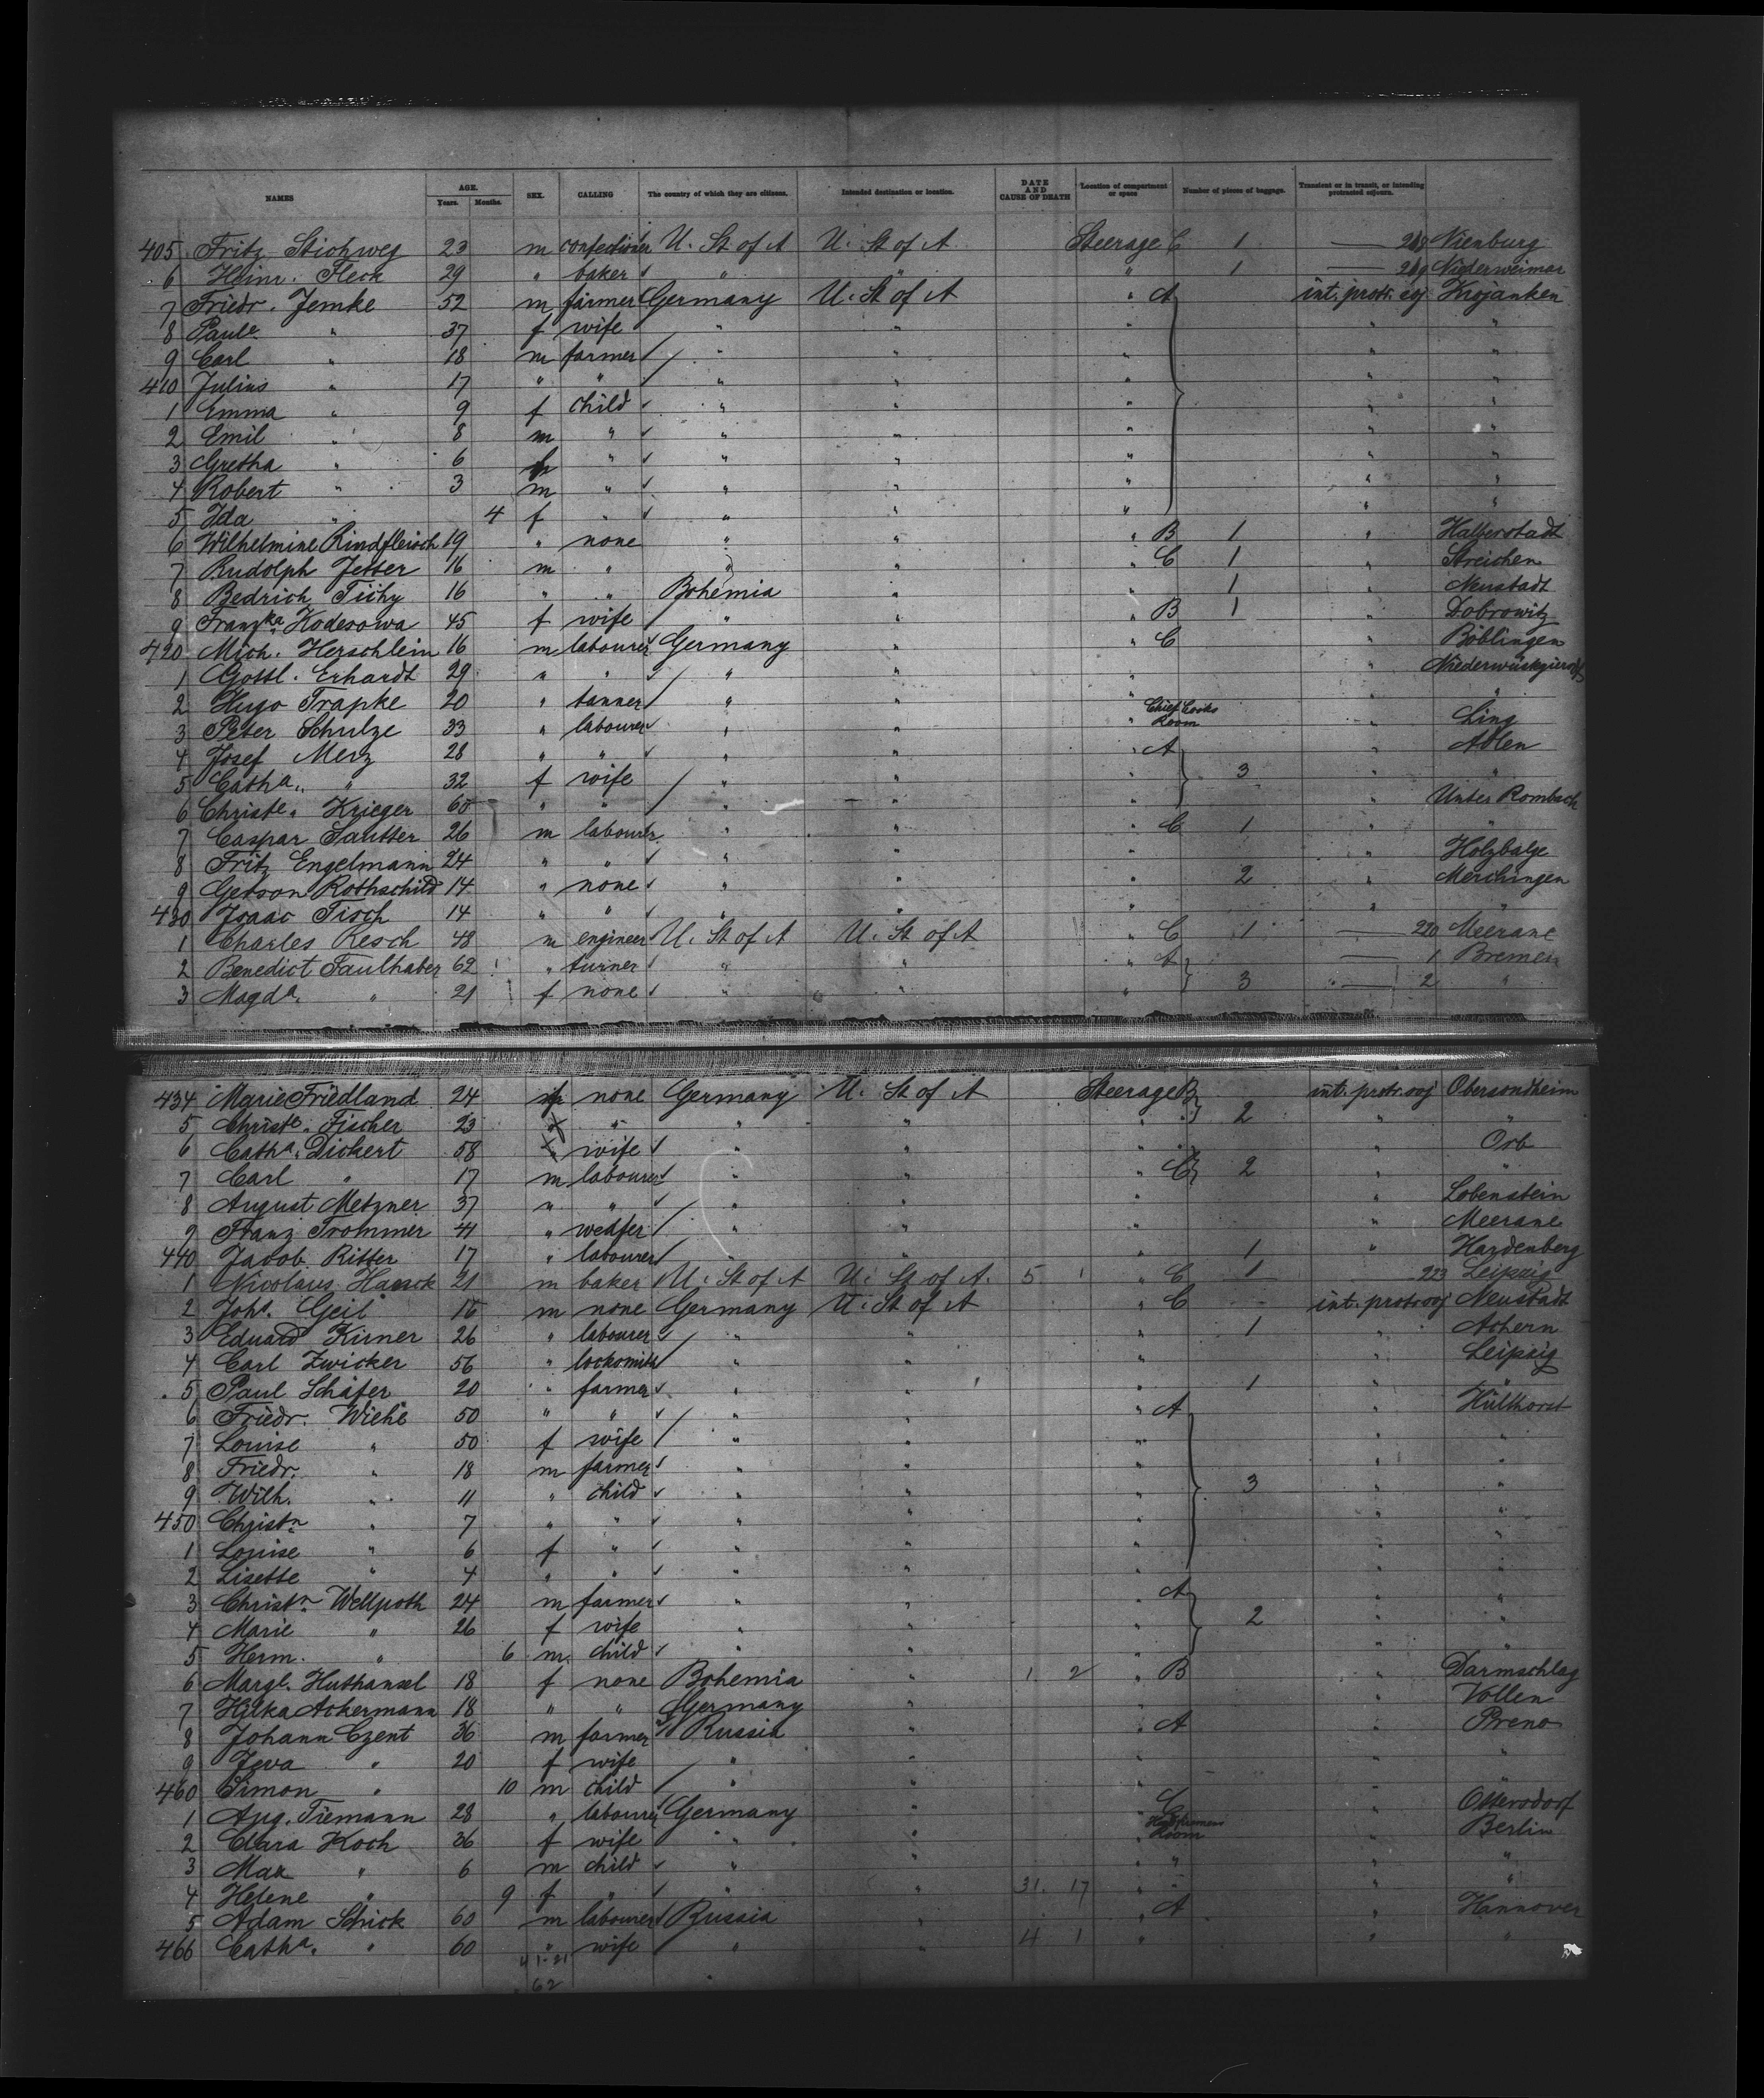 NAMES AGE. Years. Months. SEX. CALLING The country of which they are citizens. Intended destination or location. DATE AND CAUSE OF DEATH Location of compartment or space Number of pieces of baggage. Transient or in transit, or intending protracted sojourn.
405 Fritz Stichweg 23 m confectioner U. St of A U. St of A Steerage C 1 — 218 Nienburg
6 Heinr. Fleck 29 " baker " " " 1 — 219 Niederweimar
7 Friedr. Jemke 52 m farmer Germany U. St of A " A int. protr. soj Krojanken
8 Paule " 37 f wife " " " " "
9 Carl " 18 m farmer " " " " "
410 Julius " 17 " " " " " " "
1 Emma " 9 f child " " " " "
2 Emil " 8 m " " " " " "
3 Gretha " 6 f " " " " " "
4 Robert " 3 m " " " " " "
5 Ida " 4 f " " " " " "
6 Wilhelmine Rindfleisch 19 " none " " " B 1 " Halberstadt
7 Rudolph Jetter 16 m " " " " C 1 " Streichen
8 Bedrich Tichy 16 " " Bohemia " " 1 " Neustadt
9 Franzka Kodesowa 45 f wife " " " B 1 " Dobrowitz
420 Mich. Herschlein 16 m labourer Germany " " C " Böblingen
1 Gottl. Erhardt 29 " " " " " "
2 Hugo Trapke 20 " tanner " " " " "
3 Peter Schulze 33 " labourer " " " Chief Cooks Room " Ling
4 Josef Merz 28 " " " " " A " Ablen
5 Catha. " 32 f wife " " " 3 " "
6 Christe. Krieger 60 " " " " " " Unter Rombach
7 Caspar Sautter 26 m labourer " " " C 1 " "
8 Fritz Engelmann 24 " " " " " " Holzbalge
9 Getson Rothschild 14 " none " " " 2 " Merchingen
430 Isaac Fisch 14 " " " " " " "
1 Charles Resch 48 m engineer U. St of A U. St of A " C 1 — 220 Meerane
2 Benedict Faulhaber 62 " turner " " " A — 1 Bremen
3 Magda. " 21 f none " " " 3 " — 2 "
434 Marie Friedland 24 f none Germany U. St of A Steerage B int. protr. soj Obersontheim
5 Christe. Fischer 23 " " " " " 2 " "
6 Catha. Dickert 58 " wife " " " " Orb
7 Carl " 17 m labourer " " " C 2 " "
8 August Metzner 37 " " " " " " Lobenstein
9 Franz Trommer 41 " weafer " " " " Meerane
440 Jacob Ritter 17 " labourer " " " 1 " Hardenberg
1 Nicolaus Haack 21 m baker U. St of A U. St of A. 5 1 " C 1 — 223 Leipzig
2 Johs. Geil 16 m none Germany U. St of A " C int. protr. soj Neustadt
3 Eduard Kirner 26 " labourer " " " 1 " Achern
4 Carl Zwicker 56 " locksmith " " " " Leipzig
5 Paul Schäfer 20 " farmer " " " 1 " "
6 Friedr. Wiehe 50 " " " " " A " Hüllhorst
7 Louise " 50 f wife " " " " "
8 Friedr. " 18 m farmer " " " " "
9 Wilh. " 11 " child " " " 3 " "
450 Christn " 7 " " " " " " "
1 Louise " 6 f " " " " " "
2 Lisette " 4 " " " " " " "
3 Christn. Wellpoth 24 m farmer " " " A " "
4 Marie " 26 f wife " " " 2 " "
5 Herm. " 6 m. child " " " " "
6 Marge. Huthansel 18 f none Bohemia " 1. 2 " B " Darmschlag
7 Hilka Ackermann 18 " " Germany " " " Vollen
8 Johann Czent 36 m farmer Russia " " A " Preno
9 Jeva " 20 f wife " " " " "
460 Simon " 10 m child " " " " "
1 Aug. Tiemann 28 " labourer Germany " " C " Ottersdorf
2 Clara Koch 36 f wife " " " Room " Berlin
3 Max " 6 m child " " " " " "
4 Helene " 9 f " " " 31. 17 " " " "
5 Adam Schick 60 m labourer Russia " " A " Hannover
466 Catha. " 60 " wife " " 4 1 " " "
41-21
62